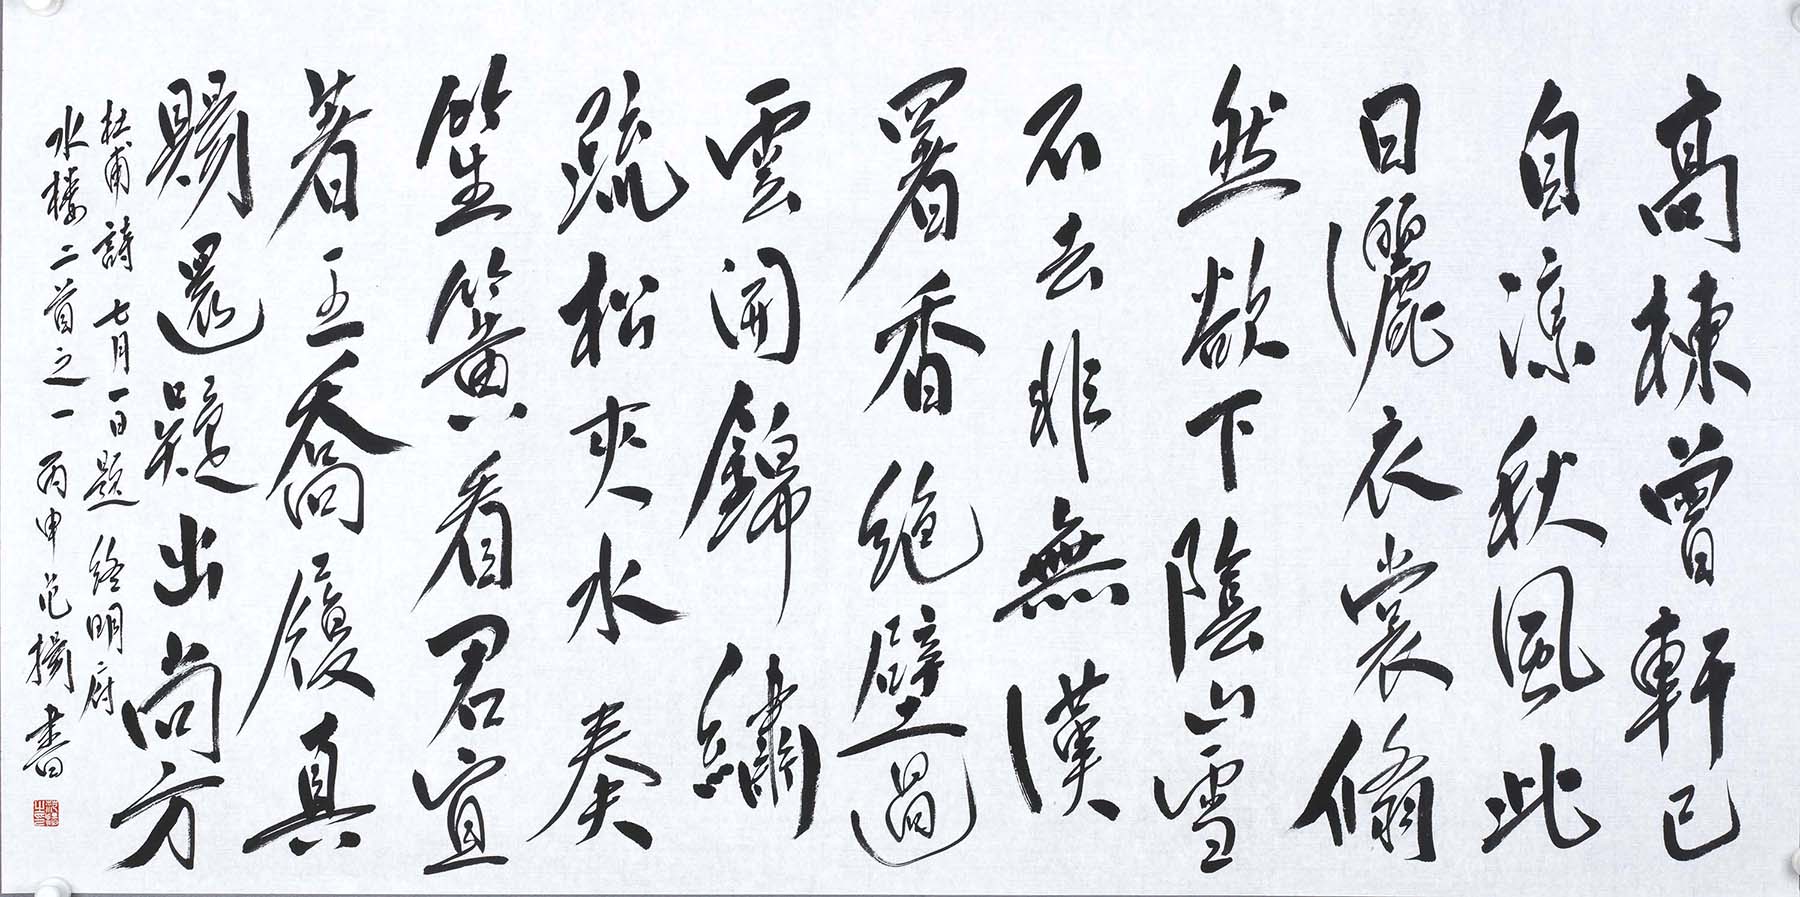 高棟曾軒已
自涼秋風此
日灑衣裳翛
然欲下陰山雪
不去非無漢
署香絕壁過
雲開錦繡
疏松夾水奏
笙簧看君宜
著王喬履真
賜還疑出尚方
杜甫詩 七月一日題 終明府
水楼二首之一 丙申 范揚書